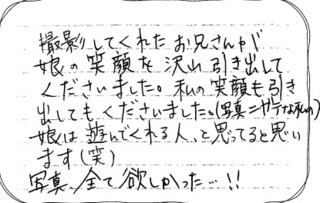 撮影してくれたお兄さんが
娘の笑顔を沢山引き出して
くださいました。私の笑顔も引き
出してもくださいました。(写真ニガテな私の)
娘は遊んでくれる人、と思ってると思い
ます(笑)
写真、全て欲しかった…!!